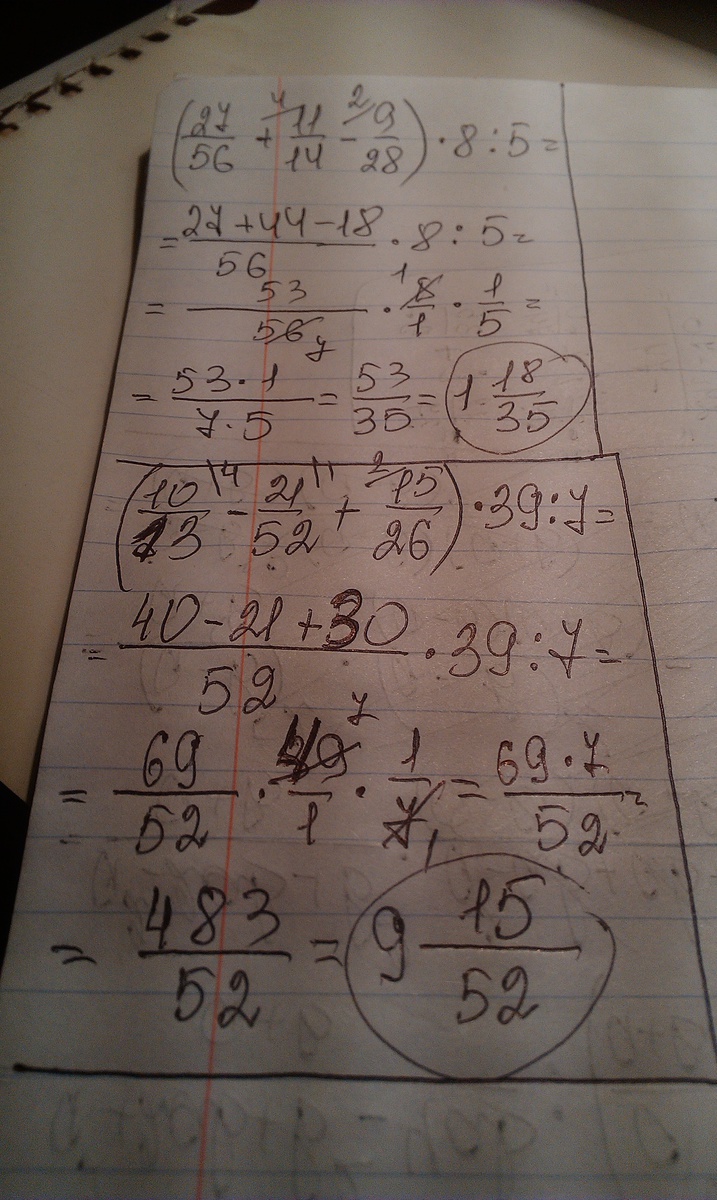 (27/56 + 4 11/14 - 2 9/28) · 8 : 5 =
= (27+44-18)/56 · 8 : 5 =
= 53/56 7 · 1 8/1 · 1/5 =
= (53·1)/(7·5) = 53/35 = 1 18/35
(10/13 \4 - 21/52 \1 + 2 15/26) · 39 : 7 =
= (40-21+30)/52 · 39 : 7 =
= 69/52 · 49/1 7 · 1/7 1 = (69·7)/52 =
= 483/52 = 9 15/52